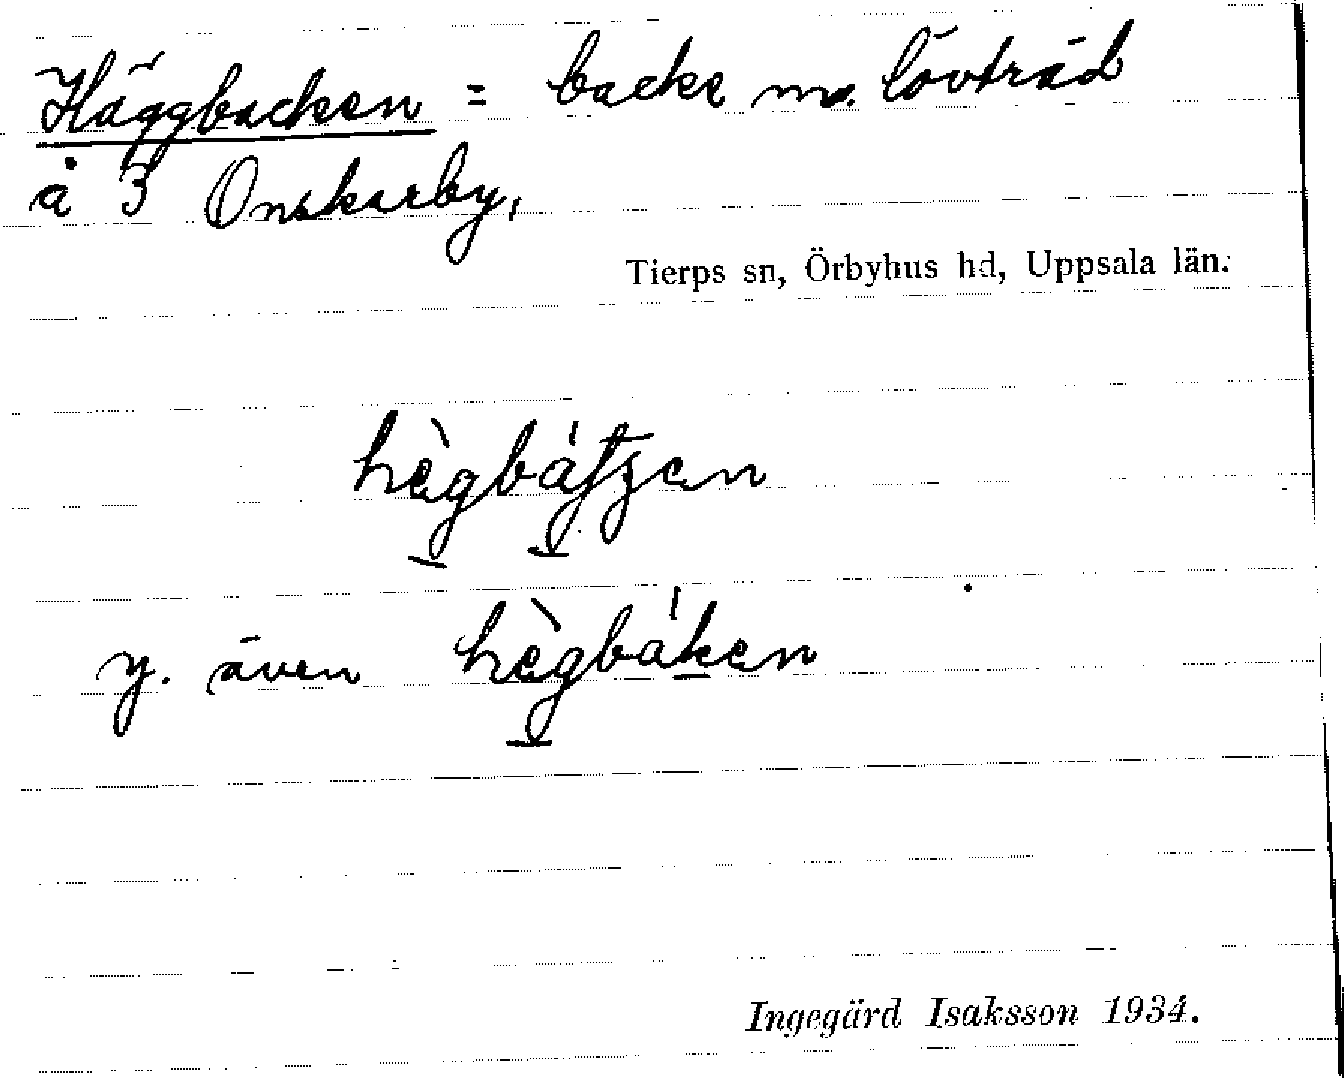 Häggbacken = backe m. lövträd
å 3 Onskarby,
Tierps sn, Örbyhus hd, Uppsala län.
hègbátʃen
y. även hègbáken
Ingegärd Isaksson 1934.